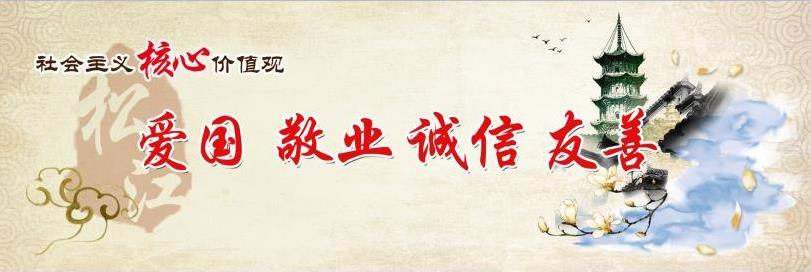 社会主义核心价值观
松江
爱国 敬业 诚信 友善